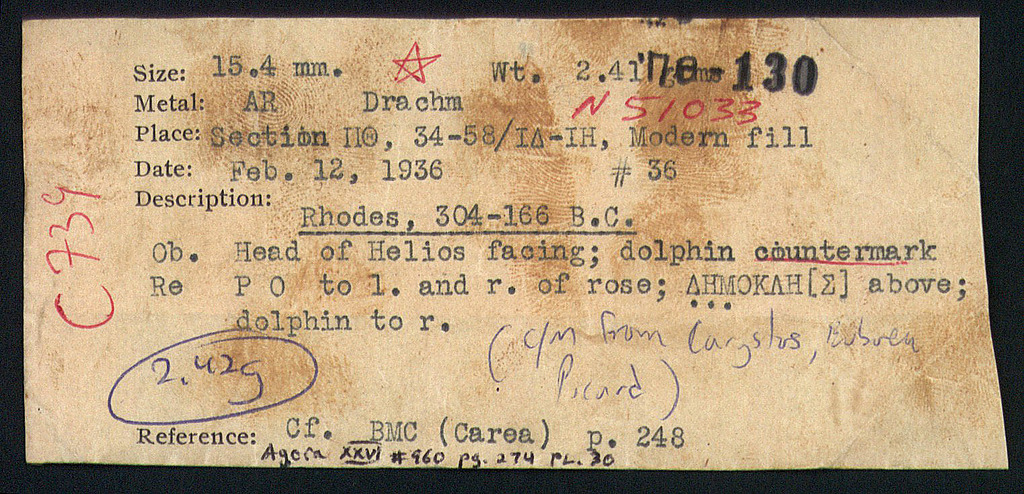 Size: 15.4 mm. ☆ Wt. 2.41 gms ΠΘ-130
Metal: AR Drachm N 51033
Place: Section ΠΘ, 34-58/ΙΔ-ΙΗ, Modern fill
Date: Feb. 12, 1936 # 36
Description:
Rhodes, 304-166 B.C.
Ob. Head of Helios facing; dolphin countermark
Re P O to l. and r. of rose; ΔΗΜΟΚΛΗ[Σ] above;
dolphin to r.
(c/m from Carystos, Euboea
Picard)
2.42g
Reference: Cf. BMC (Carea) p. 248
Agora XXVI #960 pg. 274 PL. 30
C739